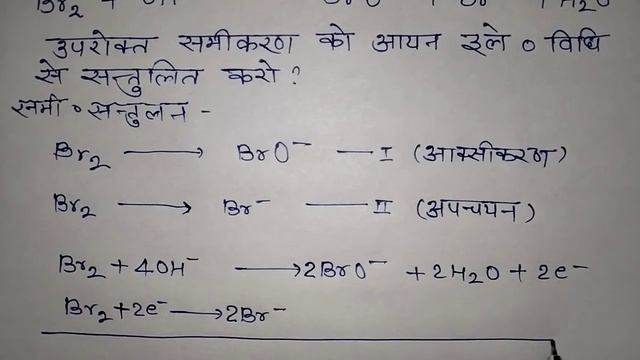 Br₂ + OH
उपरोक्त समीकरण को आयन इले ० विधि
से सन्तुलित करो ?
समी ० सन्तुलन -
Br₂ ⟶ BrO⁻ — I (आक्सीकरण)
Br₂ ⟶ Br⁻ — II (अपचयन)
Br₂ + 4OH⁻ ⟶ 2BrO⁻ + 2H₂O + 2e⁻
Br₂+2e⁻ ⟶ 2Br⁻